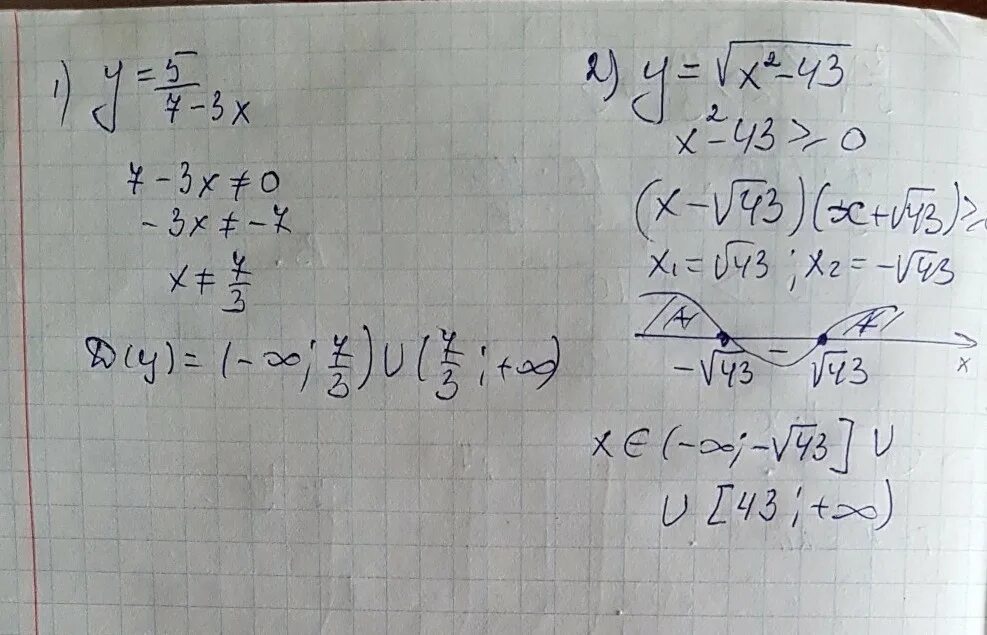 1) y = 5/(7 - 3x)
7 - 3x ≠ 0
- 3x ≠ - 7
x ≠ 7/3
D(y) = (- ∞; 7/3) ∪ (7/3; +∞)
2) y = √(x² - 43)
x² - 43 ≥ 0
(x - √43)(x + √43) ≥
x₁ = √43 ; x₂ = - √43
-
- √43 √43 x
x ∈ (- ∞; - √43] ∪
∪ [43 ; +∞)